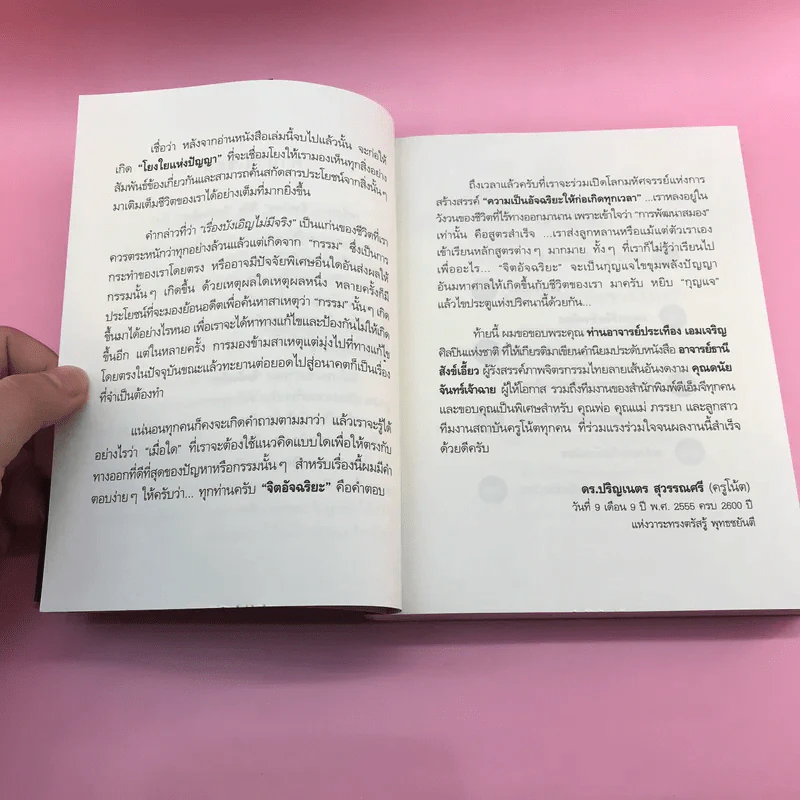 เชื่อว่า หลังจากอ่านหนังสือเล่มนี้จบไปแล้วนั้น จะก่อให้
เกิด “โยงใยแห่งปัญญา” ที่จะเชื่อมโยงให้เรามองเห็นทุกสิ่งอย่าง
สัมพันธ์ข้องเกี่ยวกันและสามารถคั้นสกัดสารประโยชน์จากสิ่งนั้นๆ
มาเติมเต็มชีวิตของเราได้อย่างเต็มที่มากยิ่งขึ้น
คำกล่าวที่ว่า “เรื่องบังเอิญไม่มีจริง” เป็นแก่นของชีวิตที่เรา
ควรตระหนักว่าทุกอย่างล้วนแล้วแต่เกิดจาก “กรรม” ซึ่งเป็นการ
กระทำของเราโดยตรง หรืออาจมีปัจจัยพิเศษอื่นใดอันส่งผลให้
กรรมนั้นๆ เกิดขึ้น ด้วยเหตุผลใดเหตุผลหนึ่ง หลายครั้งก็มี
ประโยชน์ที่จะมองย้อนอดีตเพื่อค้นหาสาเหตุว่า “กรรม” นั้นๆ เกิด
ขึ้นมาได้อย่างไรหนอ เพื่อเราจะได้หาทางแก้ไขและป้องกันไม่ให้เกิด
ขึ้นอีก แต่ในหลายครั้ง การมองข้ามสาเหตุแต่มุ่งไปที่ทางแก้ไข
โดยตรงในปัจจุบันขณะแล้วทะยานต่อยอดไปสู่อนาคตก็เป็นเรื่อง
ที่จำเป็นต้องทำ
แน่นอนทุกคนก็คงจะเกิดคำถามตามมาว่า แล้วเราจะรู้ได้
อย่างไรว่า “เมื่อใด” ที่เราจะต้องใช้แนวคิดแบบใดเพื่อให้ตรงกับ
ทางออกที่ดีที่สุดของปัญหาหรือกรรมนั้นๆ สำหรับเรื่องนี้ผมมีคำ
ตอบง่ายๆ ให้ครับว่า... ทุกท่านครับ “จิตอัจฉริยะ” คือคำตอบ
ถึงเวลาแล้วครับที่เราจะร่วมเปิดโลกมหัศจรรย์แห่งการ
สร้างสรรค์ “ความเป็นอัจฉริยะให้ก่อเกิดทุกเวลา” ...เราหลงอยู่ใน
วังวนของชีวิตที่ไร้ทางออกมานาน เพราะเข้าใจว่า “การพัฒนาสมอง”
เท่านั้น คือสูตรสำเร็จ ...เราส่งลูกหลานหรือแม้แต่ตัวเราเอง
เข้าเรียนหลักสูตรต่างๆ มากมาย ทั้งๆ ที่เราก็ไม่รู้ว่าเรียนไป
เพื่ออะไร... “จิตอัจฉริยะ” จะเป็นกุญแจไขขุมพลังปัญญา
อันมหาศาลให้เกิดขึ้นกับชีวิตของเรา มาครับ หยิบ “กุญแจ”
แล้วไขประตูแห่งปริศนานี้ด้วยกัน...
ท้ายนี้ ผมขอขอบพระคุณ ท่านอาจารย์ประเทือง เอมเจริญ
ศิลปินแห่งชาติ ที่ให้เกียรติมาเขียนคำนิยมประดับหนังสือ อาจารย์ธานี
สังข์เอี้ยว ผู้รังสรรค์ภาพจิตรกรรมไทยลายเส้นอันงดงาม คุณดนัย
จันทร์เจ้าฉาย ผู้ให้โอกาส รวมถึงทีมงานของสำนักพิมพ์ดีเอ็มจีทุกคน
และขอบคุณเป็นพิเศษสำหรับ คุณพ่อ คุณแม่ ภรรยา และลูกสาว
ทีมงานสถาบันครูโน้ตทุกคน ที่ร่วมแรงร่วมใจจนผลงานนี้สำเร็จ
ด้วยดีครับ
ดร.ปริญเนตร สุวรรณศรี (ครูโน้ต)
วันที่ 9 เดือน 9 ปี พ.ศ. 2555 ครบ 2600 ปี
แห่งวาระทรงตรัสรู้ พุทธชยันตี